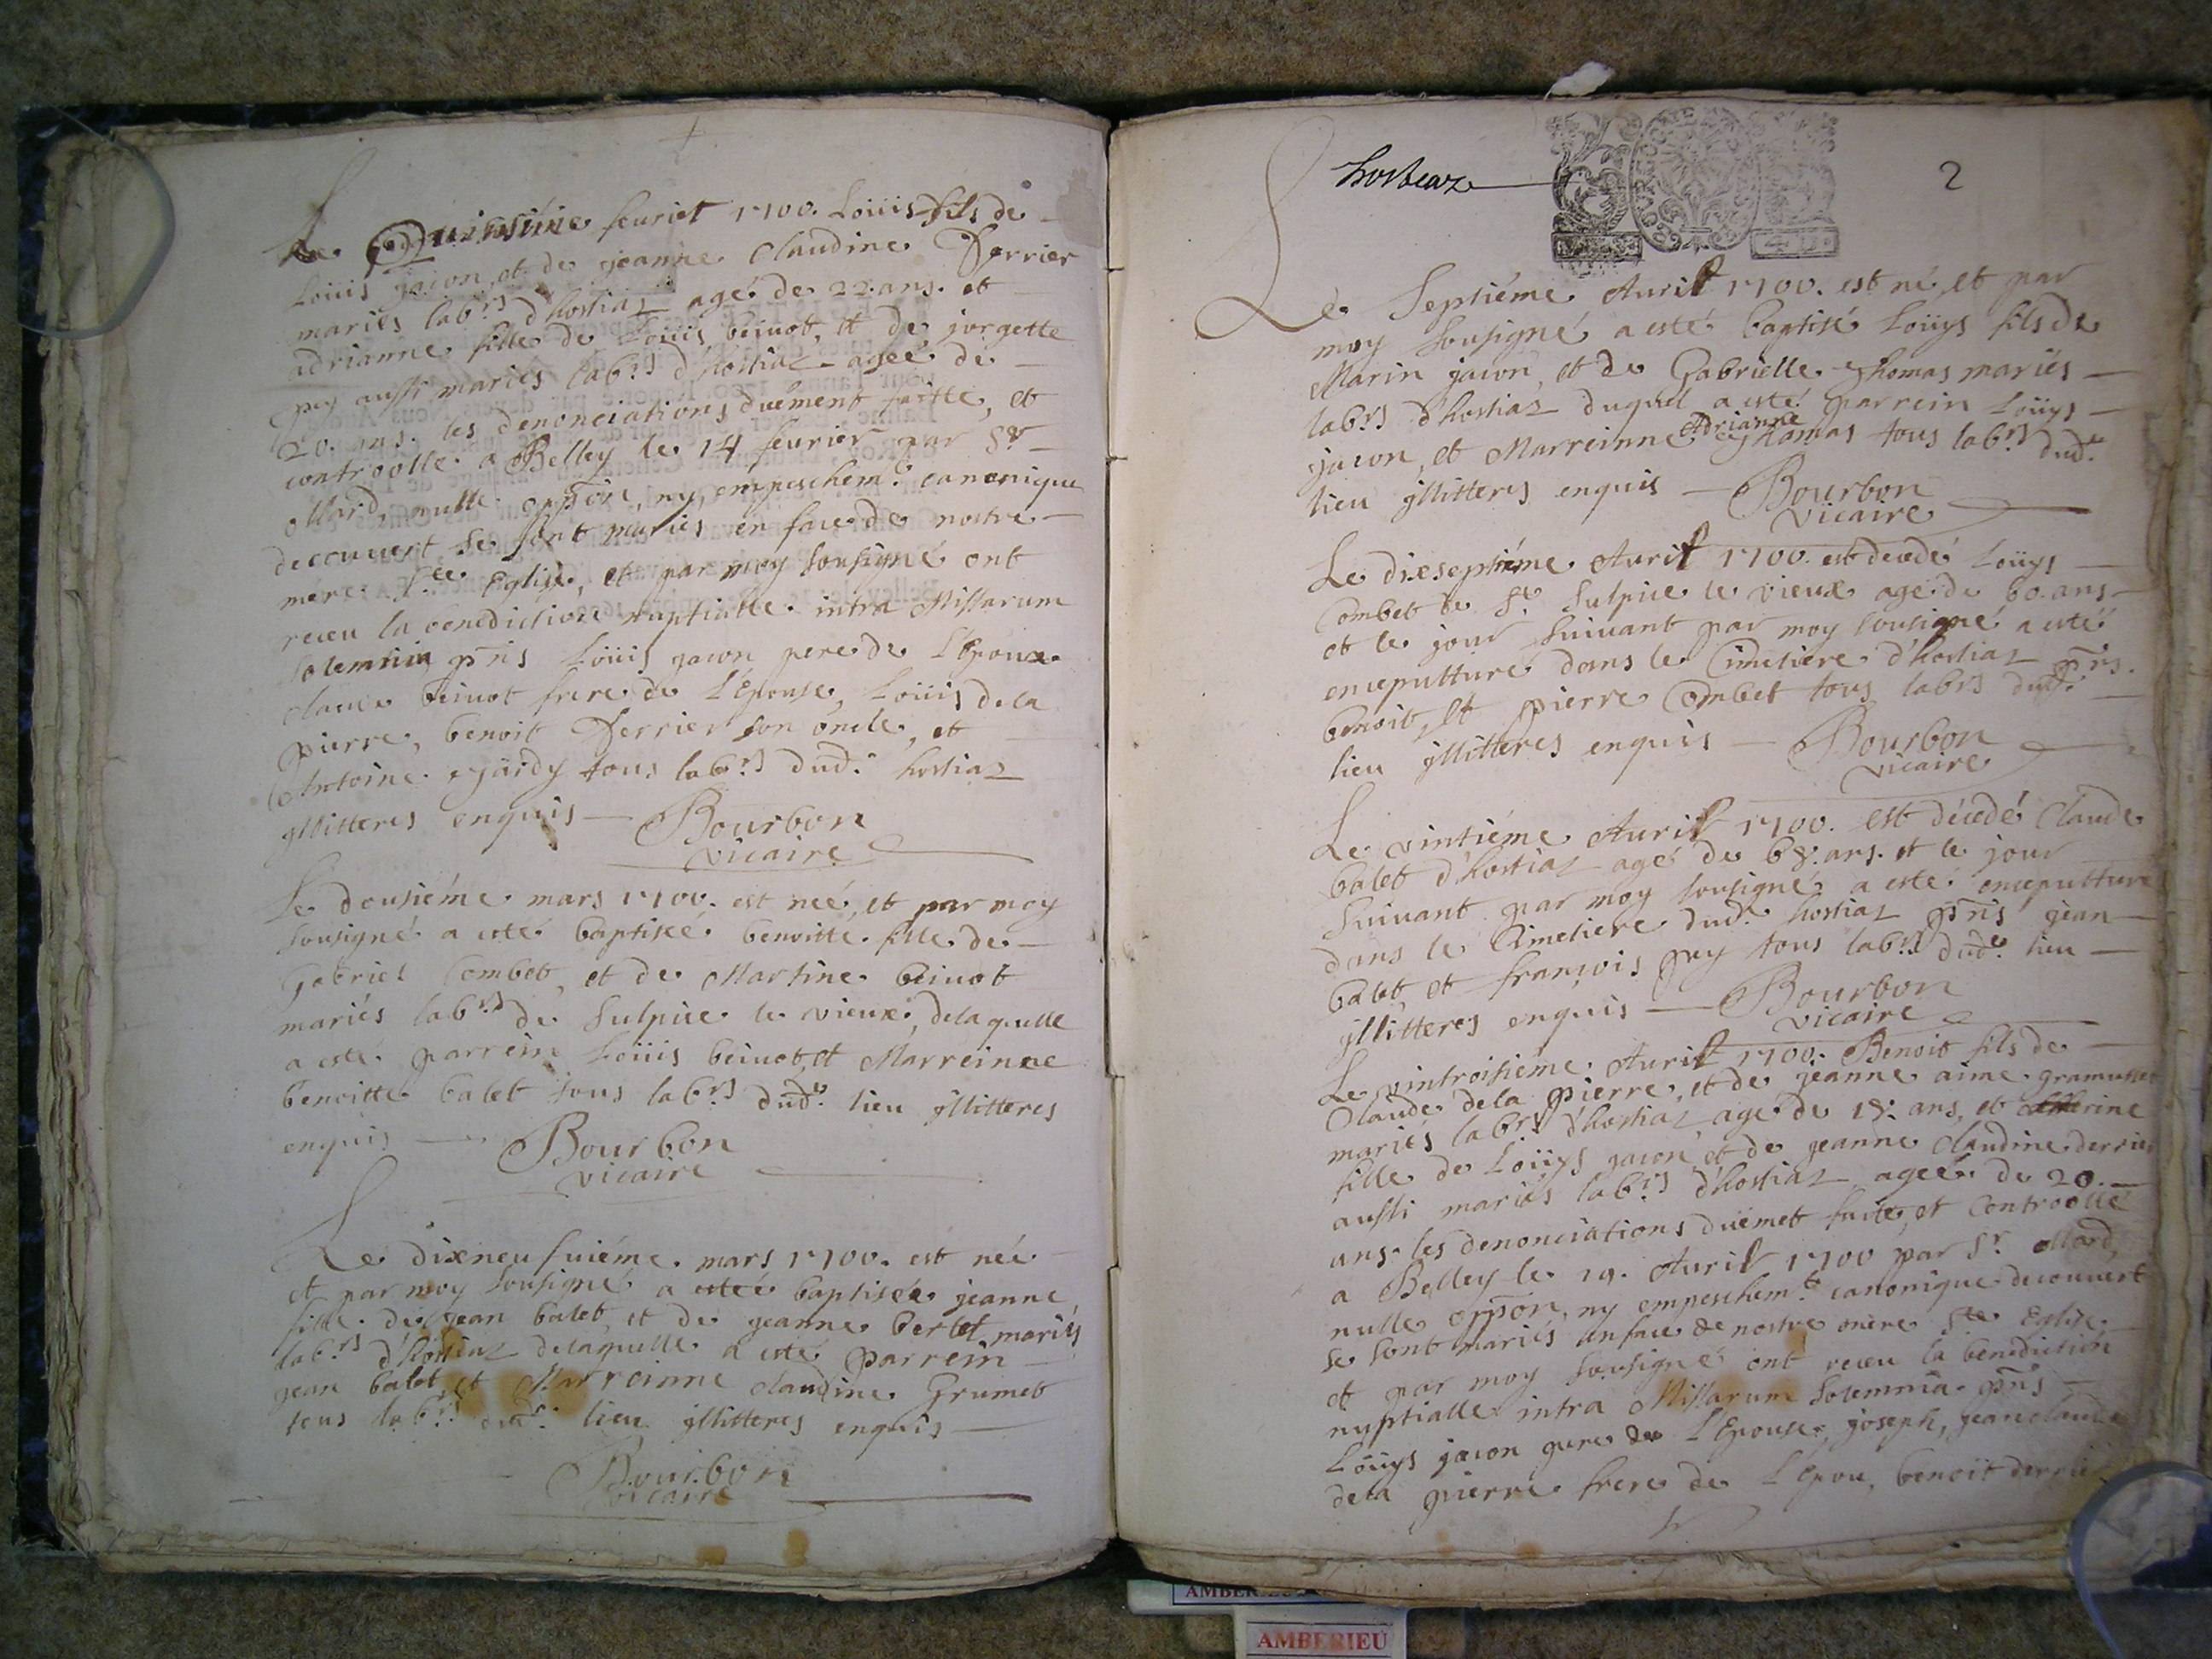 Le feurier 1700. Loüis fils de
Loüis jacon, et de jeanne Claudine Derrier
mariés lab.rs d'hostiaz agé de 22. ans. et
adrianne fille de Loüis beiuot, et de jorgette
puy aussi mariés lab.rs d'hostiaz agée de
20. ans. les denonciations düement faitte, et
controolle a Belley le 14 feurier par Sr
ollard, nulle oppon, ny empeschem.t canonique
decouuert se sont mariés en face de nostre
mére Ste Eglise, et par moy sousigné ont
receu la benediction nuptialle intra Missarum
solemnia pnts Loüis jacon pere de L'Epoux
claude beiuot frere de L'Epouse, Loüis dela
pierre, benoit Derrier son oncle, et
Antoine tous lab.rs dud. hostiaz
yllitteres enquis — Bourbon
vicaire
Le dousiéme mars 1700. est neé, et par moy
sousigné a esté baptiseé benoitte fille de
Gabriel Combet, et de Martine beiuot
mariés lab.rs de Sulpice le vieux, dela quelle
a esté parrein Loüis beiuot, et Marreinne
benoitte balet tous lab.rs dud. lieu yllitteres
enquis — Bourbon
vicaire
Le dixneufuiéme mars 1700. est neé
et par moy sousigné a esteé baptiseé jeanne
fille de jean balet, et de jeanne bertet mariés
lab.rs d'hostiaz delaquelle a esté parrein
jean balet, et Marreinne claudine Grumet
tous lab.rs dud. lieu yllitteres enquis
Bourbon
vicaire
hosteaz
2
Le Septiéme Auril 1700. est né, et par
moy sousigné a esté baptisé Loüys fils de
Marin jacon, et de Gabrielle Thomas mariés
lab.rs d'hostiaz duquel a esté parrein Loüys
Adrianne
jacon, et Marreinne Thomas tous lab.rs dud.
lieu yllitteres enquis — Bourbon
vicaire
Le dixseptiéme Auril 1700. est decedé Loüys
Combet de St Sulpice le vieux agé de 60. ans
et le jour suiuant par moy sousigné a esté
enseputturé dans le Cimetiere d'hostiaz pnts.
benoit, et pierre Combet tous lab.rs dud.
lieu yllitteres enquis — Bourbon
vicaire
Le vintiéme Auril 1700. est décedé Claude
balet d'hostiaz agé de 68. ans. et le jour
suiuant par moy sousigné a esté enseputturé
dans le Cimetiere dud. hostiaz pnts jean
balet, et françois puy tous lab.rs dud. lieu
yllitteres enquis — Bourbon
vicaire
Le vintroisiéme Auril 1700. Benoit fils de
Claude dela pierre, et de jeanne aime gramusset
mariés lab.rs d'hostiaz agé de 18. ans, et
fille de Loüys jacon, et de jeanne Claudine derrier
aussi mariés lab.rs d'hostiaz ageé de 20.
ans. les denonciations düemet faite, et Controollé
a Belley le 19. Auril 1700 par Sr. ollard,
nulle oppon, ny empeschem.t canonique decouuert
se sont mariés en face de nostre mére Ste Eglise
et par moy sousigné ont receu la benediction
nuptialle intra Missarum Solemnia pnts
Loüys jacon pere de L'Epouse, joseph, jean claude
dela pierre frere de L'Epou, benoit derrier
AMBERIEU